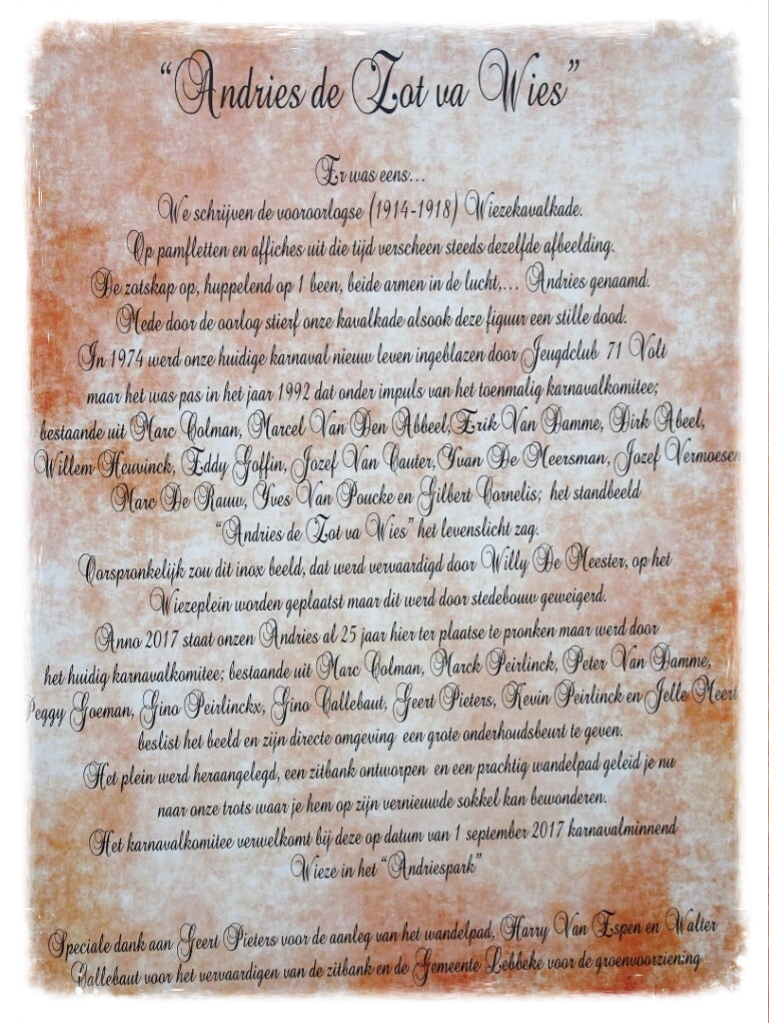 “Andries de Zot va Wies”
Er was eens...
We schrijven de vooroorlogse (1914-1918) Wiezekavalkade.
Op pamfletten en affiches uit die tijd verscheen steeds dezelfde afbeelding.
De zotskap op, huppelend op 1 been, beide armen in de lucht,... Andries genaamd.
Mede door de oorlog stierf onze kavalkade alsook deze figuur een stille dood.
In 1974 werd onze huidige karnaval nieuw leven ingeblazen door Jeugdclub 71 Volt
maar het was pas in het jaar 1992 dat onder impuls van het toenmalig karnavalkomitee;
bestaande uit Marc Colman, Marcel Van Den Abbeel, Erik Van Damme, Dirk Abeel,
Willem Heuvinck, Eddy Goffin, Jozef Van Cauter, Yvan De Meersman, Jozef Vermoesen
Marc De Rauw, Yves Van Poucke en Gilbert Cornelis; het standbeeld
“Andries de Zot va Wies” het levenslicht zag.
Oorspronkelijk zou dit inox beeld, dat werd vervaardigd door Willy De Meester, op het
Wiezeplein worden geplaatst maar dit werd door stedebouw geweigerd.
Anno 2017 staat onzen Andries al 25 jaar hier ter plaatse te pronken maar werd door
het huidig karnavalkomitee; bestaande uit Marc Colman, Marck Peirlinck, Peter Van Damme,
Peggy Goeman, Gino Peirlinckx, Gino Callebaut, Geert Pieters, Kevin Peirlinck en Jelle Meert
beslist het beeld en zijn directe omgeving een grote onderhoudsbeurt te geven.
Het plein werd heraangelegd, een zitbank ontworpen en een prachtig wandelpad geleid je nu
naar onze trots waar je hem op zijn vernieuwde sokkel kan bewonderen.
Het karnavalkomitee verwelkomt bij deze op datum van 1 september 2017 karnavalminnend
Wieze in het “Andriespark”
Speciale dank aan Geert Pieters voor de aanleg van het wandelpad, Harry Van Espen en Walter
Callebaut voor het vervaardigen van de zitbank en de Gemeente Lebbeke voor de groenvoorziening.